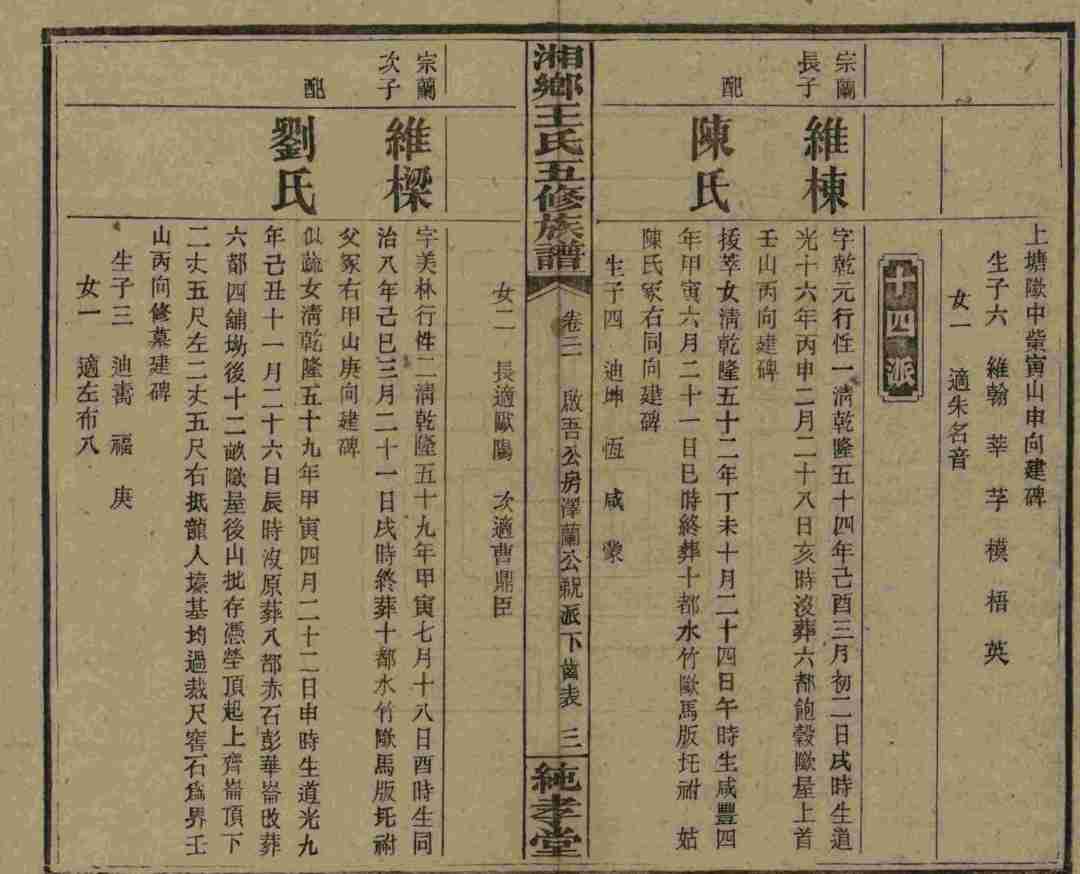 上塘㘵中塋寅山申向建碑
生子六 維翰 莘 芓 模 梧 英
女一 適朱名音
十四派
宗蘭
長子
維棟
字乾元行性一清乾隆五十四年己酉三月初二日戌時生道
光十六年丙申二月二十八日亥時沒葬六都鮑穀㘵屋上首
壬山丙向建碑
配
陳氏
援莘女清乾隆五十二年丁未十月二十四日午時生咸豐四
年甲寅六月二十一日巳時終葬十都水竹㘵馬版圫祔 姑
陳氏冢右同向建碑
生子四 迪坤 恆 咸 蒙
湘鄉王氏五修族譜
卷三 啟吾公房澤蘭公 派下齒表 三
純孝堂
女二 長適歐陽 次適曹鼎臣
宗蘭
次子
維樑
字美林行性二清乾隆五十九年甲寅七月十八日酉時生同
治八年己巳三月二十一日戌時終葬十都水竹㘵馬版圫祔
父冢右甲山庚向建碑
配
劉氏
似蔬女清乾隆五十九年甲寅四月二十二日申時生道光九
年己丑十一月二十六日辰時沒原葬八都赤石彭華崙改葬
六都四舖坳後十二畝㘵屋後山批存憑塋頂起上齊崙頂下
二丈五尺左二丈五尺右抵顏人壕基均過裁尺窖石爲界壬
山丙向修墓建碑
生子三 迪壽 福 庚
女一 適左布八